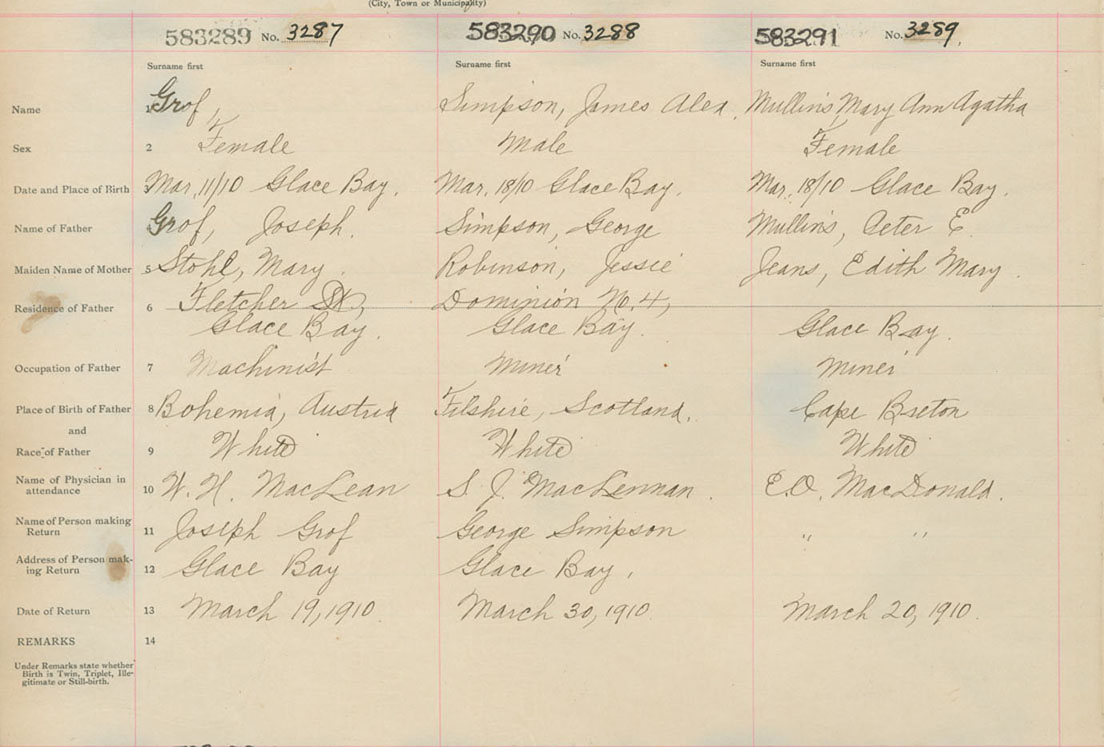 (City, Town or Municipality)
583289 No. 3287 583290 No. 3288 583291 No. 3289
Surname first Surname first Surname first
Name 1 Grof, Simpson, James Alex. Mullins, Mary Ann Agatha
Sex 2 Female Male Female
Date and Place of Birth 3 Mar. 11/10 Glace Bay. Mar. 18/10 Glace Bay. Mar. 18/10 Glace Bay.
Name of Father 4 Grof, Joseph. Simpson, George Mullins, Peter E.
Maiden Name of Mother 5 Stohl, Mary. Robinson, Jessie Jeans, Edith Mary.
Residence of Father 6 Fletcher St, Dominion No. 4,
Glace Bay. Glace Bay. Glace Bay.
Occupation of Father 7 Machinist Miner Miner
Place of Birth of Father 8 Bohemia, Austria Filshire, Scotland. Cape Breton
and
Race of Father 9 White White White
Name of Physician in
attendance 10 W. H. MacLean S. J. MacLennan. E.O. MacDonald.
Name of Person making
Return 11 Joseph Grof George Simpson " "
Address of Person mak-
ing Return 12 Glace Bay Glace Bay.
Date of Return 13 March 19, 1910. March 30, 1910. March 20, 1910.
REMARKS 14
Under Remarks state whether
Birth is Twin, Triplet, Ille-
gitimate or Still-birth.